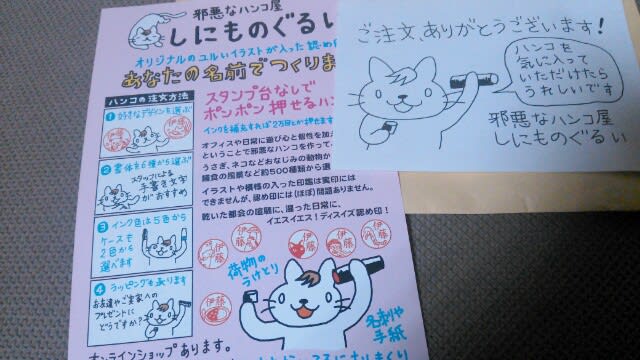 邪悪なハンコ屋
しにものぐるい
オリジナルのユルいイラストが入った認め
あなたの名前でつくりま
ハンコの注文方法
1 好きなデザインを選ぶ
2 書体を6種から選ぶ
スタッフによる
手書き文字
がおすすめ
3 インク色は5色から
ケースも
2色から
選べます
4 ラッピングも承ります
お友達やご家族への
プレゼントに
どうですか?
スタンプ台なしで
ポンポン押せるハン
インクを補充すれば2万回とか押せます
オフィスや日常に遊び心と個性を加え
ということで邪悪なハンコを作って
うさぎ、ネコなどおなじみの動物か
捕食の風景など約500種類から選
イラストや模様の入った印鑑は実印には
できませんが、認め印には(ほぼ)問題ありません。
乾いた都会の喧騒に、湿った日常に、
イエスイエス!ディスイズ認め印!
伊藤
伊藤
伊藤
伊藤
伊藤
伊藤
荷物の
うけとり
名刺や
手紙
オンラインショップあります。
ご注文、ありがとうございます!
ハンコを
気に入って
いただけたら
うれしいです
邪悪なハンコ屋
しにものぐるい